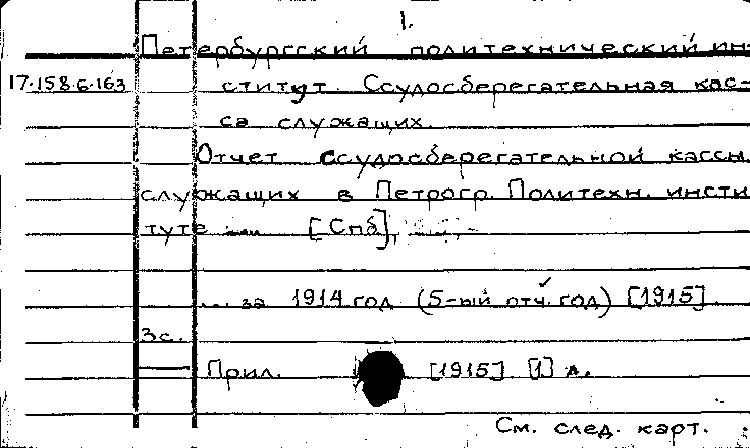 1.
Петербургский политехнический ин-
17.158.6.163 ститут. Ссудосберегательная кас-
са служащих.
Отчет ссудосберегательной кассы
служащих в Петрогр. Политехн. инсти
туте ... [Спб],
... за 1914 год (5-ый отч. год) [1915]
3с.
— Прил. [1915] [1] л.
См. след. карт.